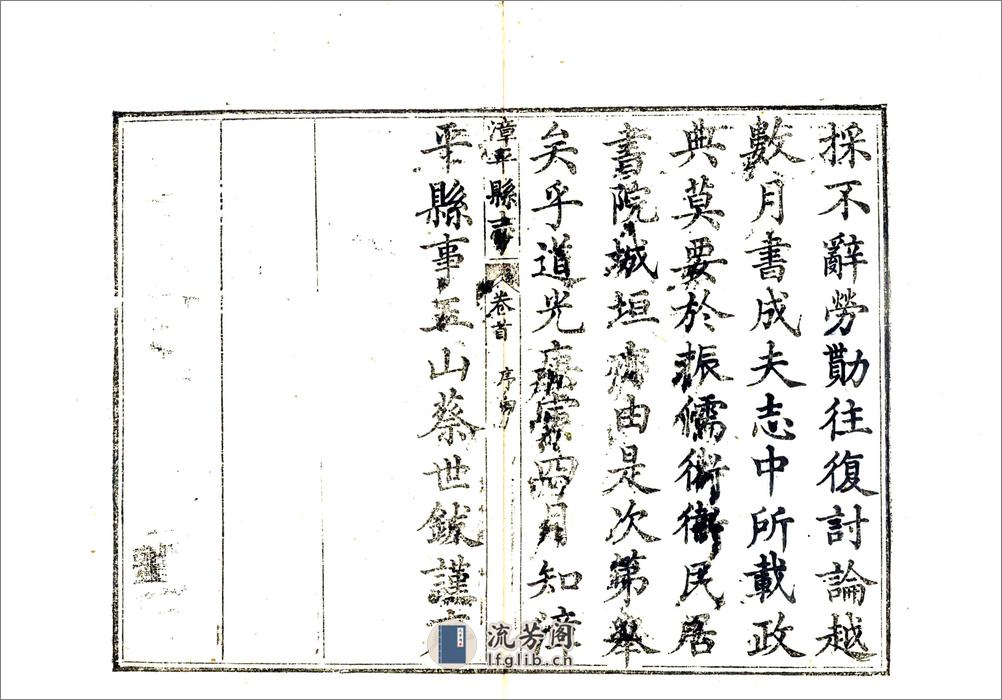 採不辭勞勩往復討論越
數月書成夫志中所載政
典莫要於振儒術衛民居
書院城垣由是次第舉
矣乎道光庚寅四月知漳
漳平縣志
卷首
序
平縣事玉山蔡世鈸謹
流芳阁
lfglib.cn